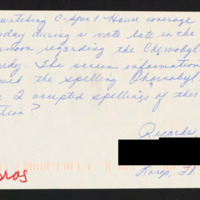 watching C-span 1 House coverage
day during a vote late in the
noon regarding the Chernobyl
dy. The screen information
d the spelling Chornobyl.
2 accepted spellings of this
tion?
Ricardo
Largo, Fl
ros